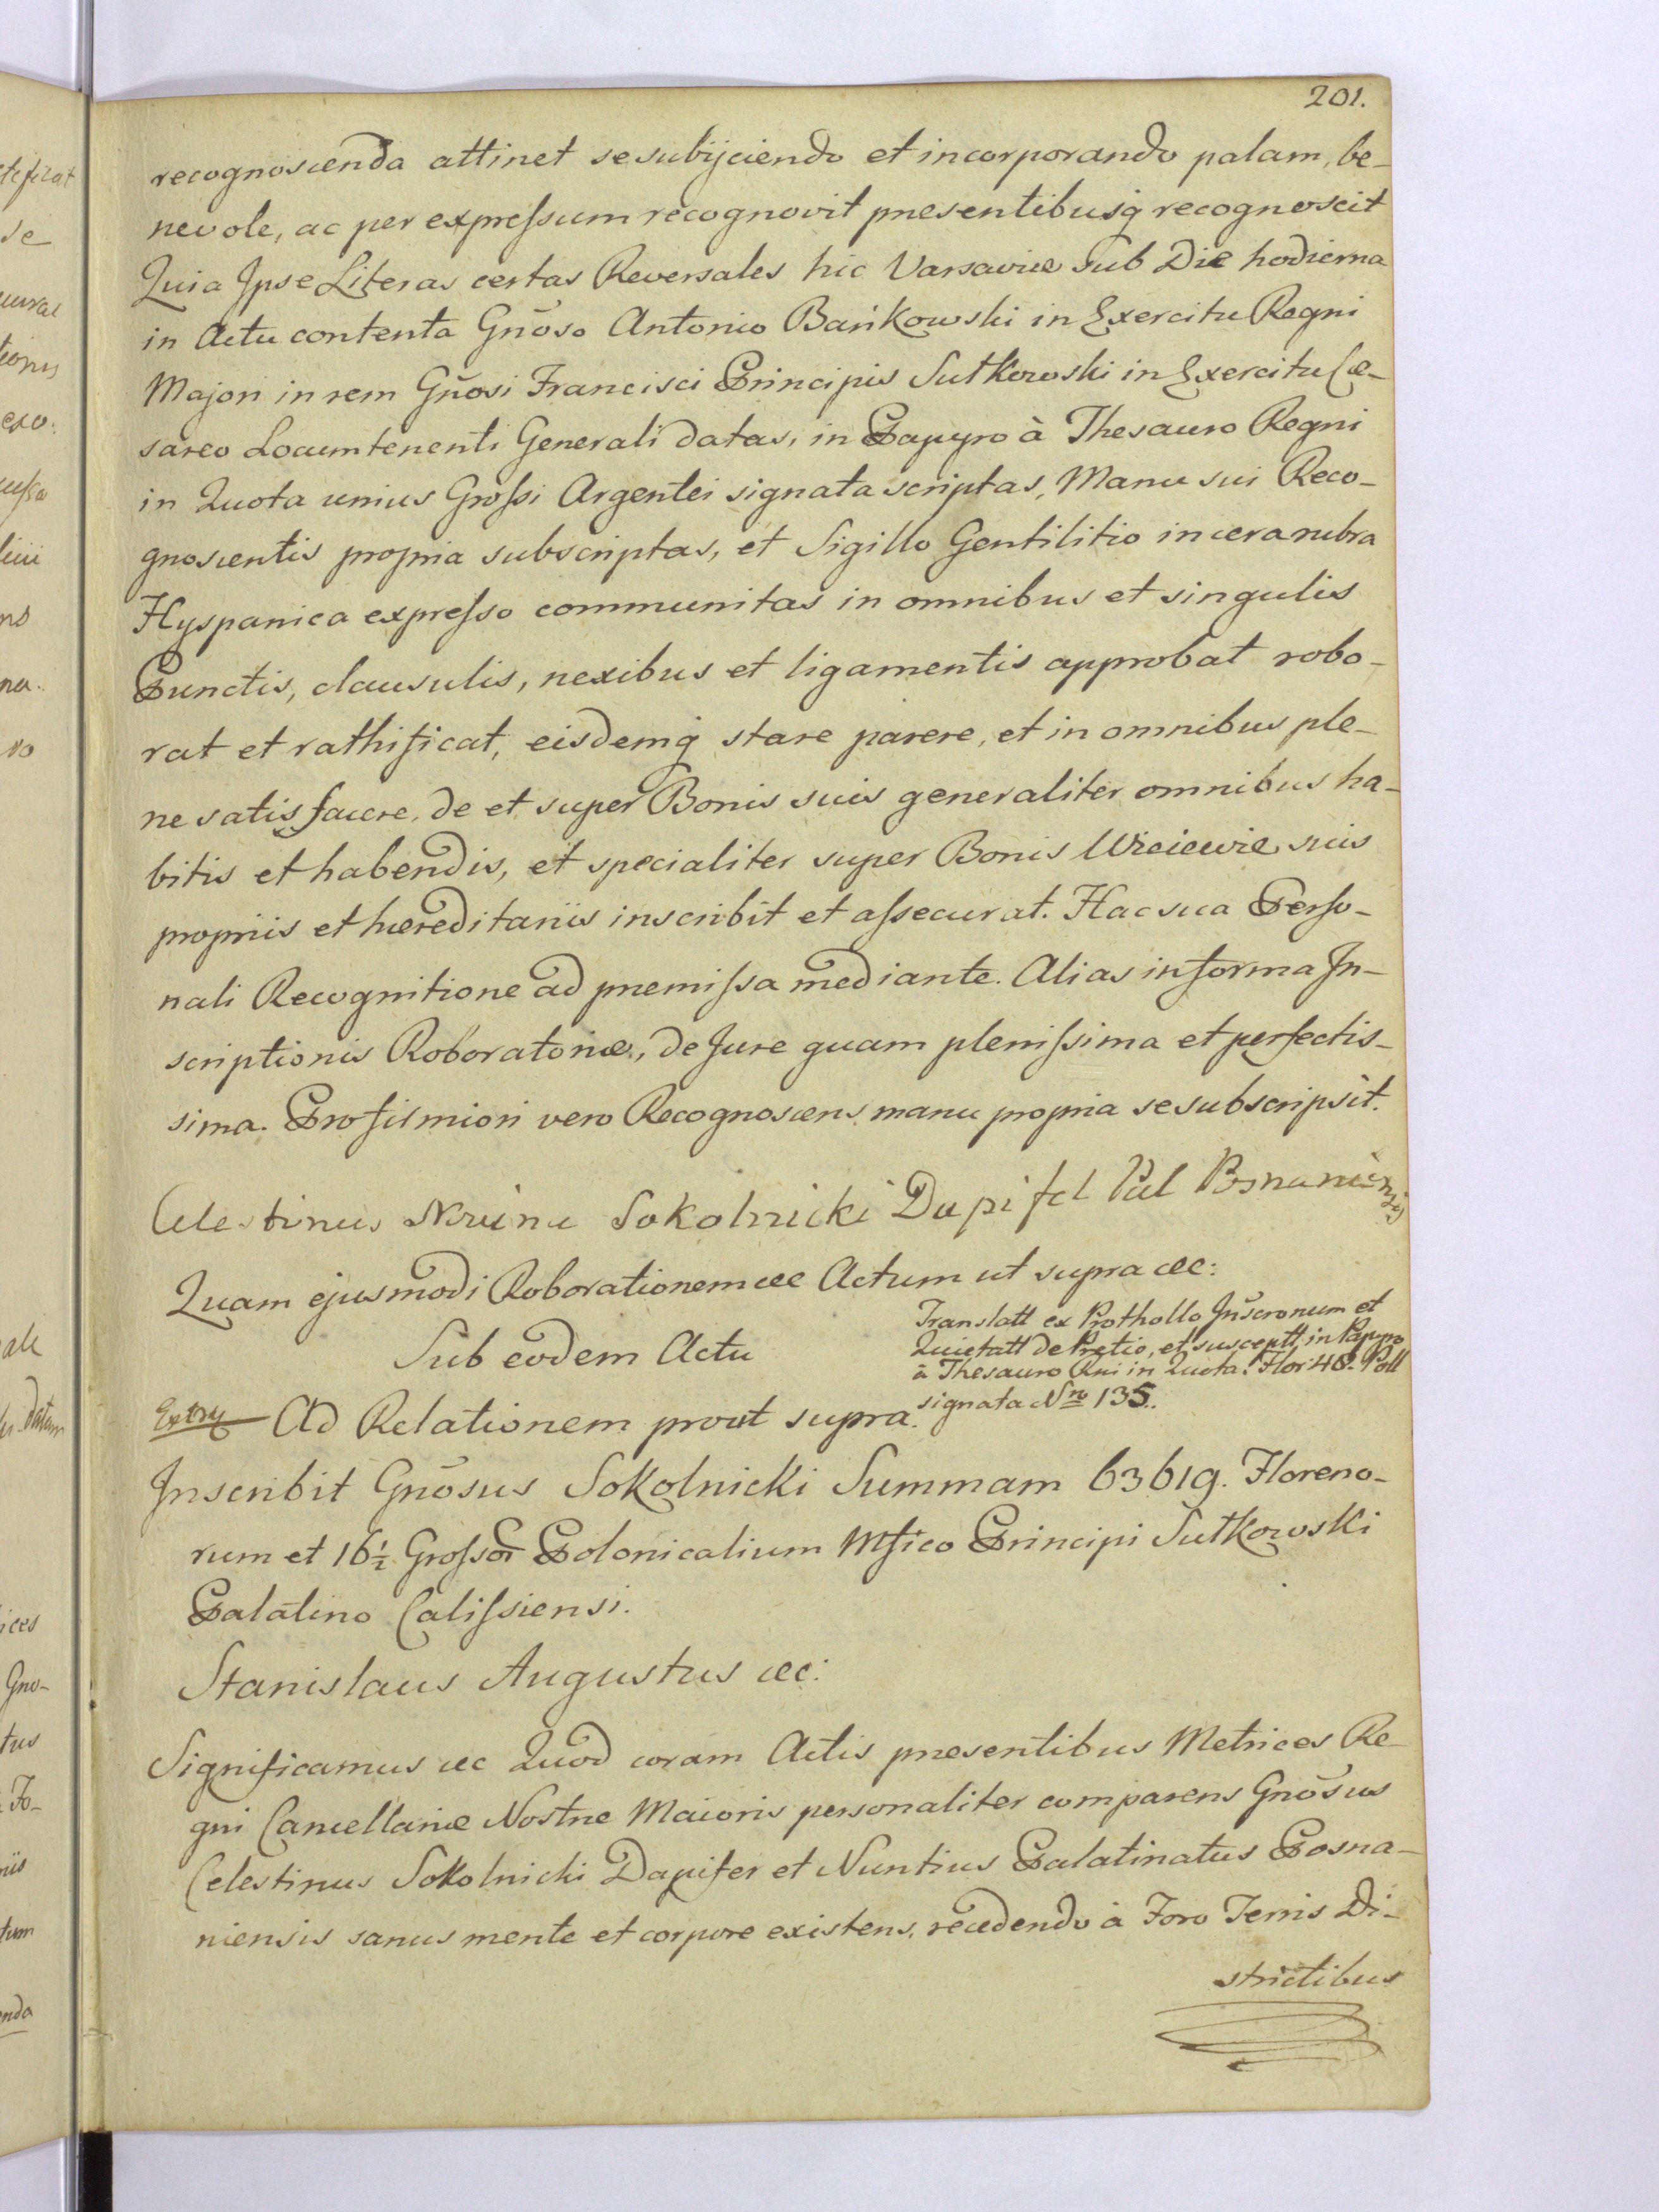 201.
recognoscenda attinet se subijciendo et incorporando palam, be-
nevole, ac per expreſsum recognovit præsentibusq́ recognoscit
Quia Ipse Literas certas Reversales hic Varsaviæ sub Die hodierna
in Actu contenta Gnõso Antonio Bańkowski in Exercitu Regni
Majori in rem Gnõsi Francisci Principis Sułkowski in Exercitu Cæ-
sareo Locumtenenti Generali datas, in Papyro à Thesauro Regni
in Quota unius Groſsi Argentei signata scriptas, Manu sui Reco-
gnoscentis propria subscriptas, et Sigillo Gentilitio in cera rubra
Hyspanica expreſso communitas in omnibus et singulis
Punctis, clausulis, nexibus et ligamentis approbat robo-
rat et rathificat, eisdemq́ stare parere, et in omnibus ple-
ne satisfacere, de et super Bonis suis generaliter omnibus ha-
bitis et habendis, et specialiter super Bonis suis
propriis et hæreditariis inscribit et aſsecurat. Hac sua Perſo-
nali Recognitione ad præmiſsa mediante. Alias in forma In-
scriptionis Roboratoriæ, de Jure quam pleniſsima et perfectis-
sima. Pro firmiori vero Recognoscens manu propria se subscripsit.
Celestinus Sokolnicki Dapifel Pal Posnaniensis
Quam ejusmodi Roborationem &c Actum ut supra &c:
Translatt ex Prothollo Inscronum et
Quietatt de Pretio, et susceptt in Papyro
à Thesauro Rni in Quota. Flor: 48. Poll
signata Nro 135.
Sub eodem Actu
Extry Ad Relationem prout supra.
Inscribit Gnõsus Sokolnicki Summam 63619. Floreno-
rum et 16½ Groſsor Polonicalium Mfico Principi Sułkowski
Palatino Caliſsiensi.
Stanislaus Augustus &c:
Significamus &c Quod coram Actis præsentibus Metrices Re-
gni Cancellariæ Nostræ Maioris personaliter comparens Gnõsus
Celestinus Sokolnicki Dapifer et Nuntius Palatinatus Posna-
niensis sanus mente et corpore existens, recedendo à Foro Terris Di-
strictibus